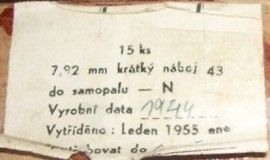 15 ks
7,92 mm krátký náboj 43
do samopalu — N
Vyrobní data 1944
Vytříděno: Leden 1955 ane